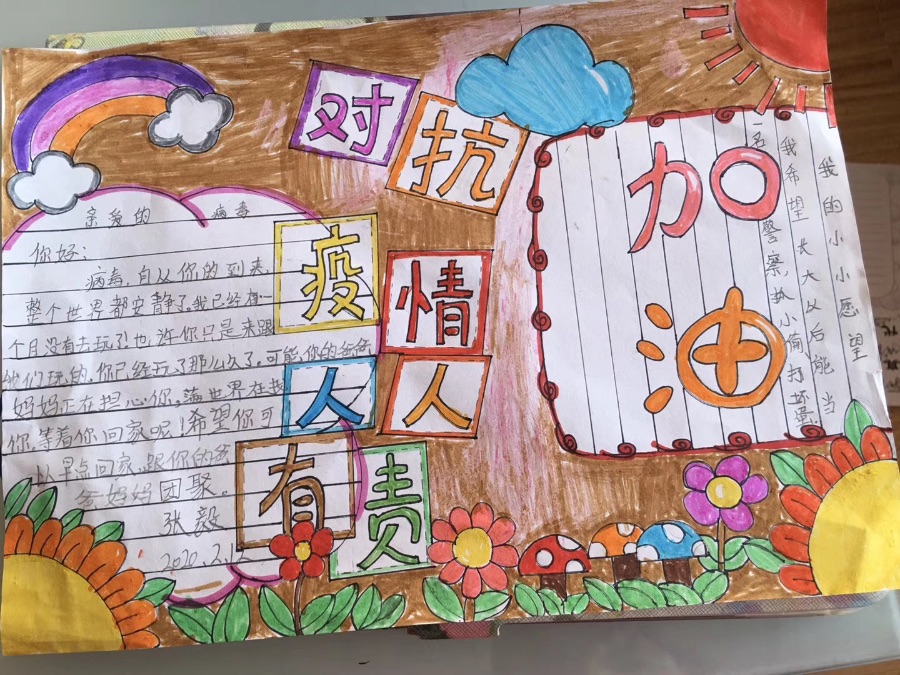 对抗
疫情
人人
有责
亲爱的 病毒
你好:
病毒,自从你的到来,
整个世界都安静了。我已经有一
个月没有去玩了!也许你只是来跟
他们玩的,你已经玩了那么久了,可能你的爸爸
妈妈正在担心你,满世界在找
你,等着你回家呢!希望你可
以早点回家,跟你的爸
爸妈妈团聚。
张毅
2020.2.1
加
油
我的小小愿望
我希望长大以后能当
一名警察,抓小偷打坏蛋